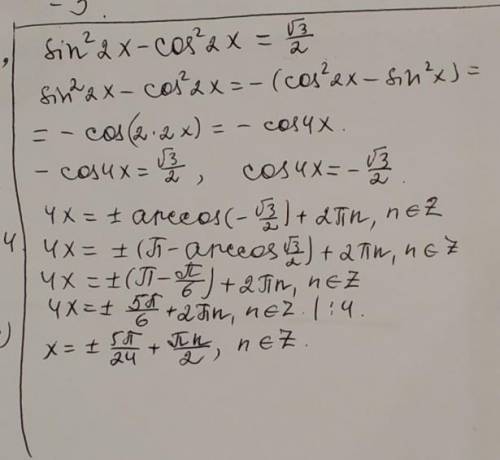 -5.
sin²2x - cos²2x = √3/2
sin²2x - cos²2x = -(cos²2x - sin²x) =
= - cos(2·2x) = - cos4x.
- cos4x = √3/2, cos4x = - √3/2.
4x = ± arccos(-√3/2) + 2πn, n∈Z
4x = ± (π - arccos √3/2) + 2πn, n∈Z
4x = ± (π - π/6) + 2πn, n∈Z
4x = ± 5π/6 + 2πn, n∈Z. | :4.
x = ± 5π/24 + πn/2, n∈Z.